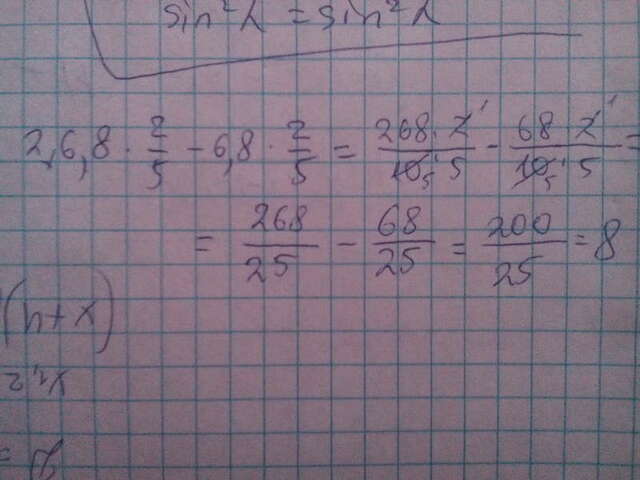 sin²α = sin²α
2,6,8 · 2/5 - 6,8 · 2/5 = 268 · 2/10 5 - 68 2/10 5 =
= 268/25 - 68/25 = 200/25 = 8
(n+x)